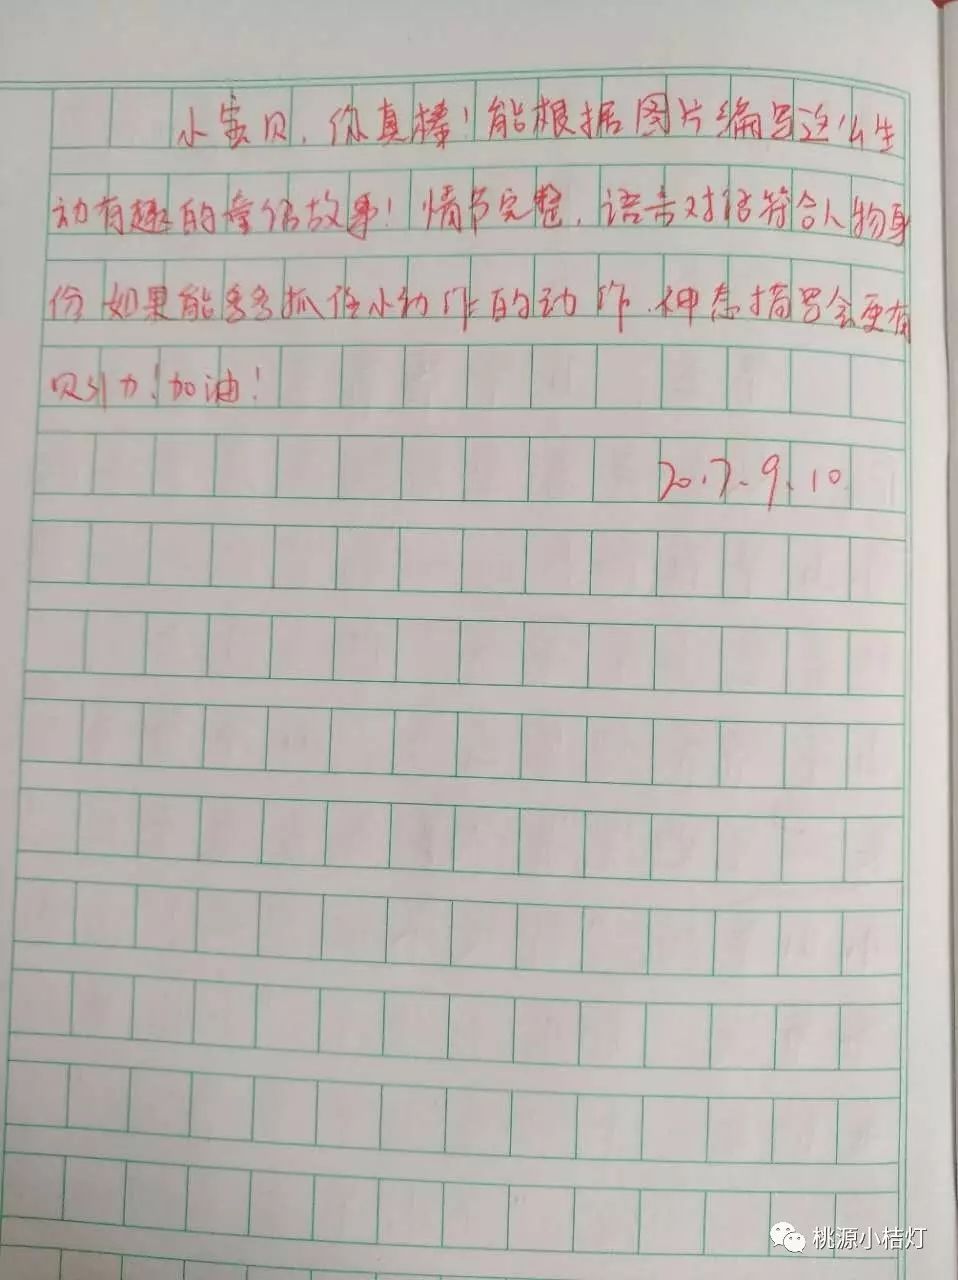 小宝贝，你真棒！能根据图片编写这么生
动有趣的童话故事！情节完整，语言对话符合人物身
份，如果能多多抓住小动作的动作、神态描写会更有
吸引力！加油！
20.7.9.10
桃源小桔灯